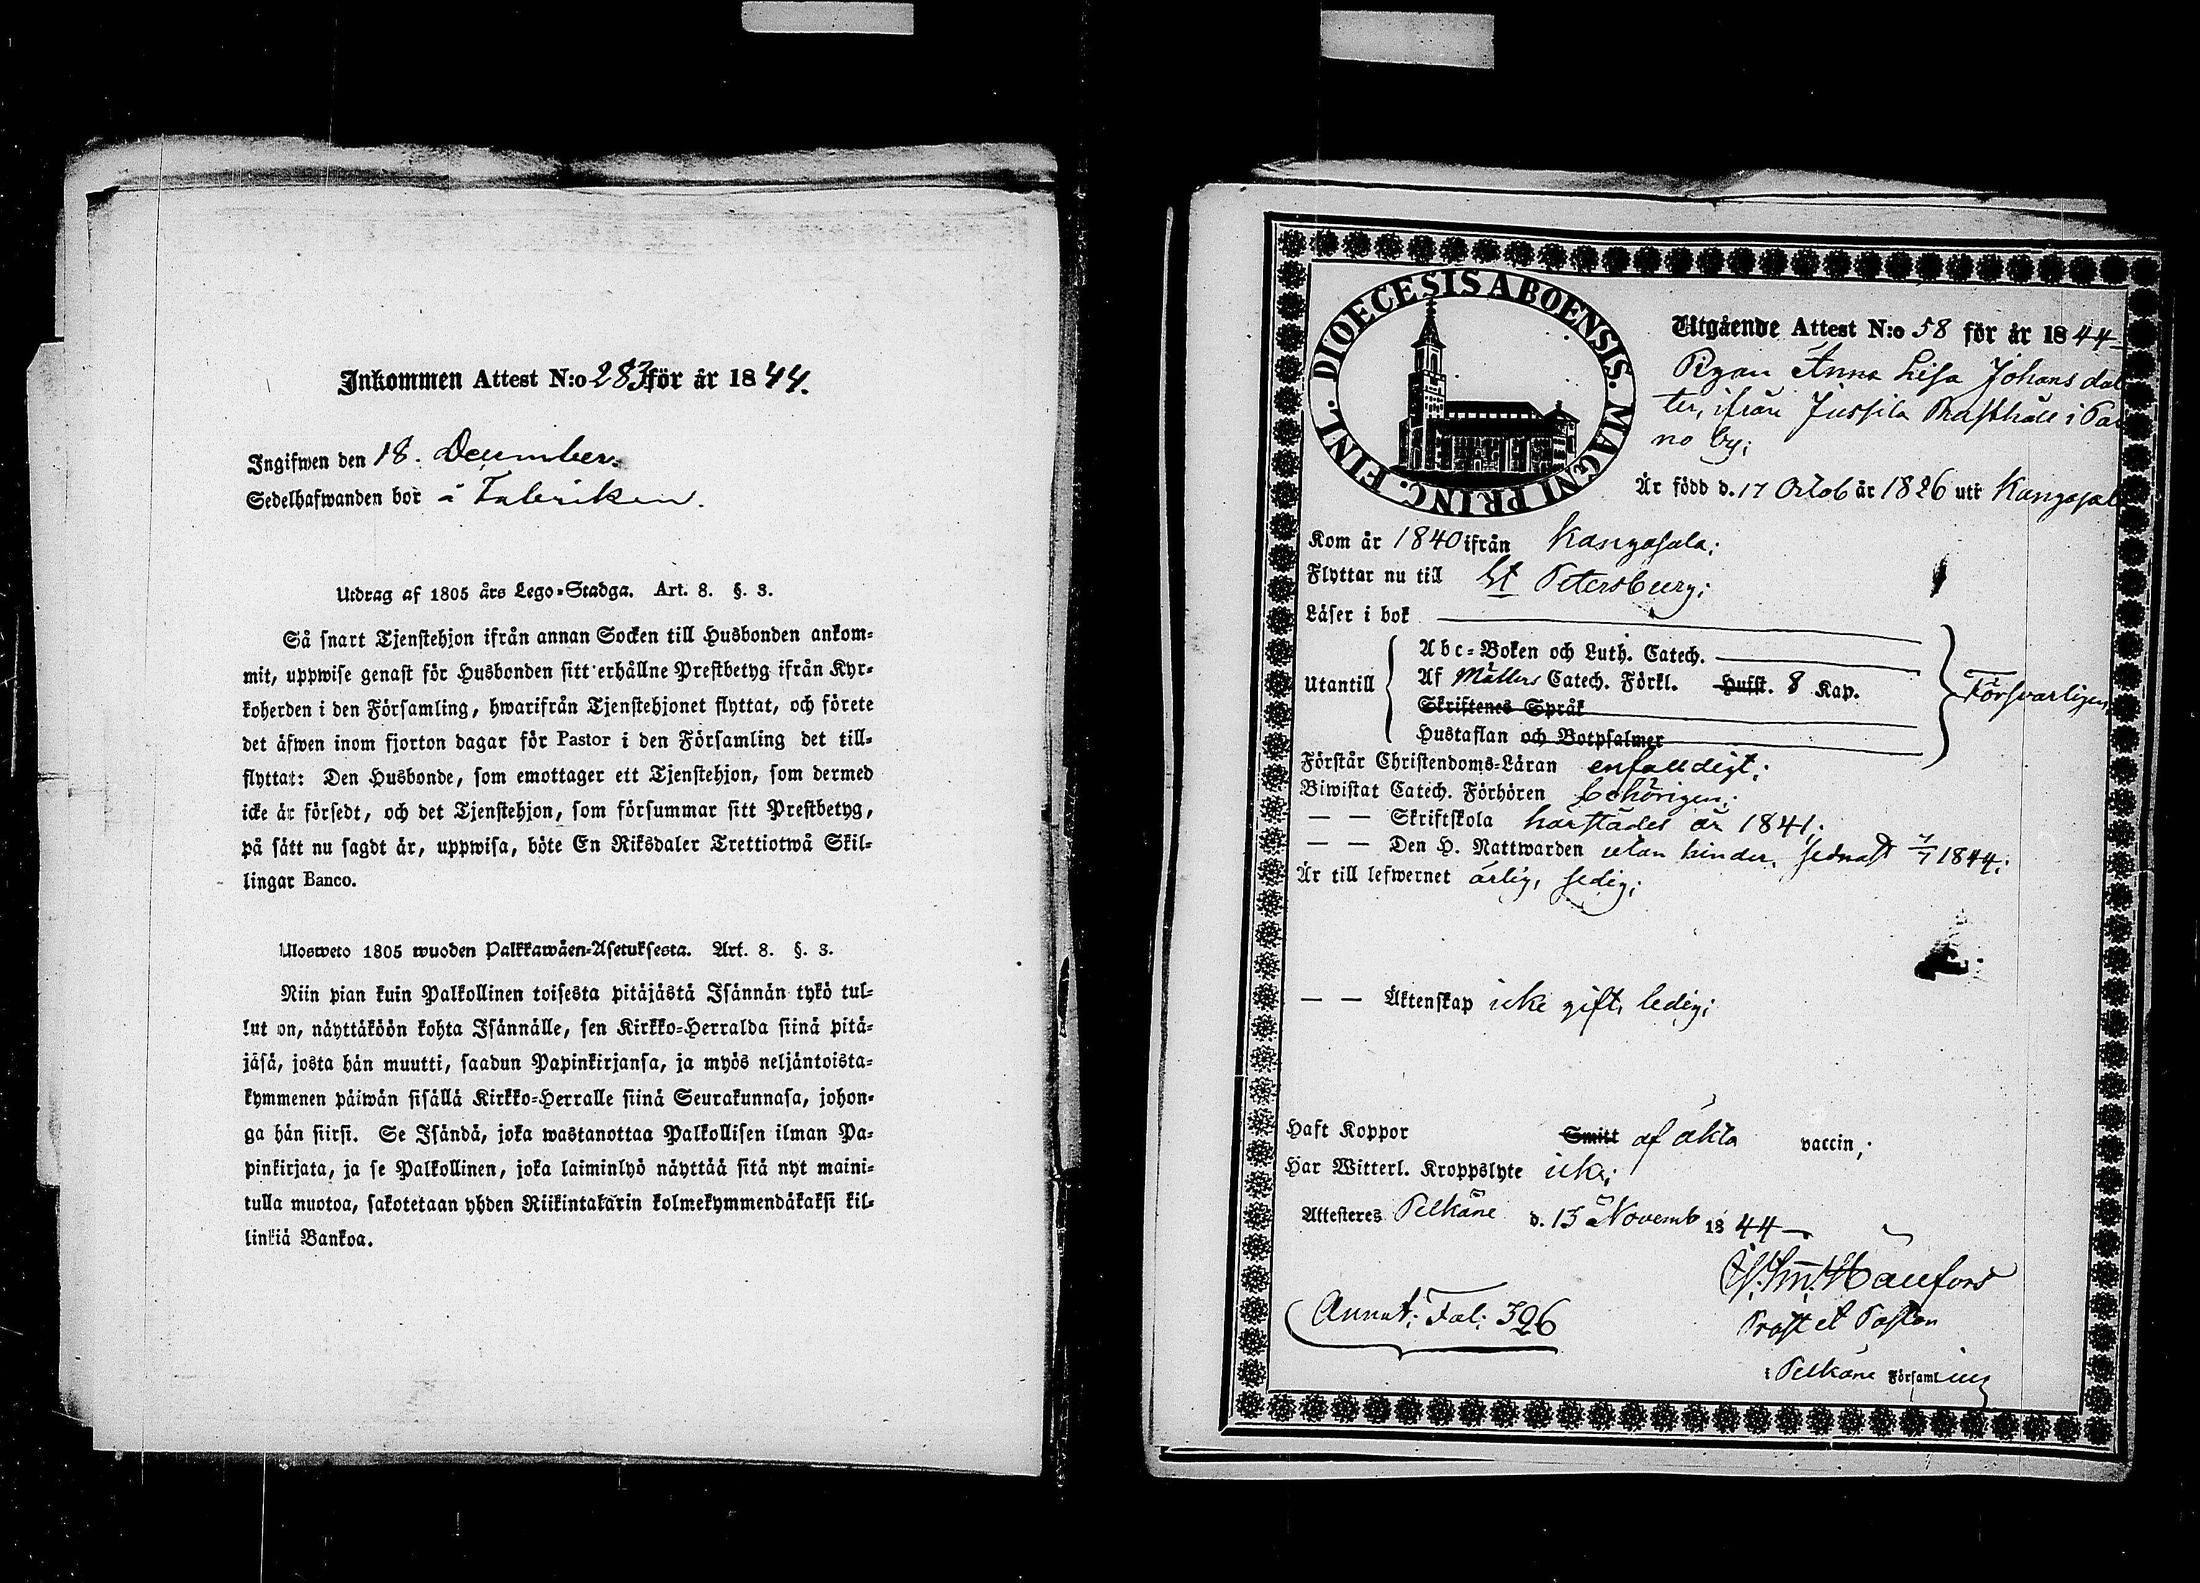 Inkommen Attest N:o 283 för år 1844.
Ingifwen den 18. December.
Sedelhafwanden bor å Fabriken.
Utdrag af 1805 års Lego-Stadga. Art. 8. §. 3.
Så snart Tjenstehjon ifrån annan Socken till Husbonden ankom-
mit, uppwise genast för Husbonden sitt erhållne Prestbetyg ifrån Kyr-
koherden i den Församling, hwarifrån Tjenstehjonet flyttat, och förete
det äfwen inom fjorton dagar för Pastor i den Församling det till-
flyttat: Den Husbonde, som emottager ett Tjenstehjon, som dermed
icke är försedt, och det Tjenstehjon, som försummar sitt Prestbetyg,
på sätt nu sagdt är, uppwisa, böte En Riksdaler Trettiotwå Skil-
lingar Banco.
Ulosweto 1805 wuoden Palkkawäen-Asetuksesta. Art. 8. §. 3.
Niin pian kuin Palkollinen toisesta pitäjästä Isännän tykö tul-
lut on, näyttäköön kohta Isännälle, sen Kirkko-Herralda siinä pitä-
jäsä, josta hän muutti, saadun Papinkirjansa, ja myös neljäntoista-
kymmenen päiwän sisällä Kirkko-Herralle siinä Seurakunnasa, johon-
ga hän siirsi. Se Isändä, joka wastanottaa Palkollisen ilman Pa-
pinkirjata, ja se Palkollinen, joka laiminlyö näyttää sitä nyt maini-
tulla muotoa, sakotetaan yhden Riikintalarin kolmekymmendäkaksi kil-
linkiä Bankoa.
DIOECESIS ABOENSIS. MAGNI PRINC. FINL.
Utgående Attest N:o 58 för år 1844
Pigan Anna Lisa Johans dot
ter, ifrån Jussila Rusthåll i
no by;
Är född d. 17 Octob år 1826 uti Kangasal
Kom år 1840 ifrån Kangasala;
Flyttar nu till St Petersburg;
Läser i bok
Abc-Boken och Luth. Catech.
Utantill Af Möllers Catech. Förkl. Hufst. 8 Kap. Försvarligen
Skriftenes Språk
Hustaflan och Botpsalmer
Förstår Christendoms-Läran enfaldigt;
Biwistat Catech. Förhören behörigen;
— — Skriftskola härstädes år 1841;
— — Den H. Nattwarden utan hinder, sednast 7/7 1844;
Är till lefwernet ärlig, sedig;
— — Äktenskap icke gift, ledig;
Haft Koppor Smitt af äkta vaccin;
Har Witterl. Kroppslyte icke;
Attesteres Pelkäne d. 13 Novemb 1844
Prost et Pastor
Annot: Fol: 326
i Pelkäne Församling